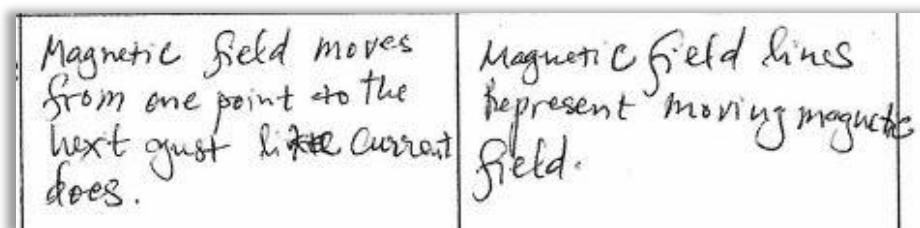 Magnetic field moves
from one point to the
next gust like current
does.
Magnetic field lines
represent moving magnetic
field.